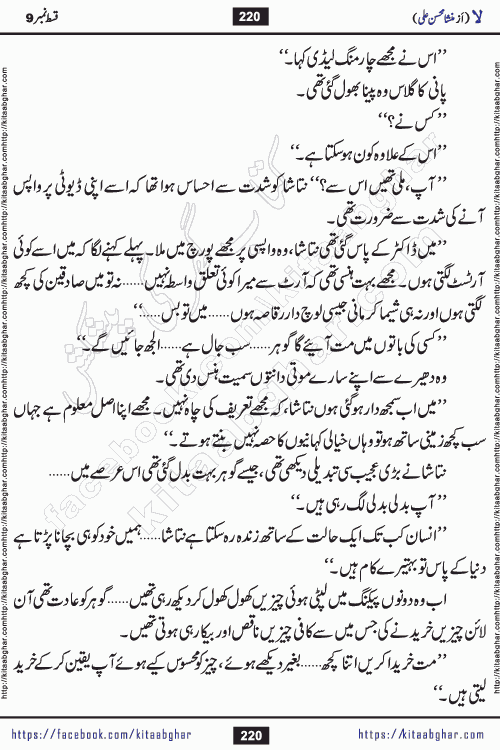 لا (از منشا محسن علی)
220
قسط نمبر 9
’’اس نے مجھے چارمنگ لیڈی کہا۔‘‘
پانی کا گلاس وہ پینا بھول گئی تھی۔
’’کس نے؟‘‘
’’اس کے علاوہ کون ہو سکتا ہے۔‘‘
’’آپ، ملی تھیں اس سے؟‘‘ نتاشا کو شدت سے احساس ہوا تھا کہ اسے اپنی ڈیوٹی پر واپس
آنے کی شدت سے ضرورت تھی۔
’’میں ڈاکٹر کے پاس گئی تھی نتاشا، وہ واپسی پر مجھے پورچ میں ملا۔ پہلے کہنے لگا کہ میں اسے کوئی
آرٹسٹ لگتی ہوں۔ مجھے بہت ہنسی تھی کہ آرٹ سے میرا کوئی تعلق واسطہ نہیں……نہ تو میں صادقین کی کچھ
لگتی ہوں اور نہ ہی شیما کرمانی جیسی لوچ دار رقاصہ ہوں……میں تو بس……‘‘
’’کسی کی باتوں میں مت آیئے گا گوہر……سب جال ہے……الجھ جائیں گے۔‘‘
وہ دھیرے سے اپنے سارے موتی دانتوں سمیت ہنس دی تھی۔
’’میں اب سمجھدار ہو گئی ہوں نتاشا، کہ مجھے تعریف کی چاہ نہیں۔ مجھے اپنا اصل معلوم ہے جہاں
سب کچھ زمینی ساتھ ہو تو وہاں خیالی کہانیوں کا حصہ نہیں بنتے ہوتے۔‘‘
نتاشا نے بڑی عجیب سی تبدیلی دیکھی تھی، جیسے گوہر بہت بدل گئی تھی اس عرصے میں……
’’آپ بدلی بدلی لگ رہی ہیں۔‘‘
’’انسان کب تک ایک حالت کے ساتھ زندہ رہ سکتا ہے نتاشا……ہمیں خود کو ہی بچانا پڑتا ہے
دنیا کے پاس تو بہتیرے کام ہیں۔‘‘
اب وہ دونوں پیکنگ میں لپٹی ہوئی چیزیں کھول کھول کر دیکھ رہی تھیں……گوہر کو عادت تھی آن
لائن چیزیں خریدنے کی جس میں سے کافی چیزیں ناقص اور بیکار ہی ہوتی تھیں۔
’’مت خریدا کریں اتنا کچھ……بغیر دیکھے ہوئے، چیز کو محسوس کیے ہوئے آپ یقین کر کے خرید
لیتی ہیں۔‘‘
کتاب گھر کی پیشکش
facebook.com/kitaabghar
kitaabghar.com
http://kitaabghar.com
http://kitaabghar.com
https://facebook.com/kitaabghar
220
https://kitaabghar.com